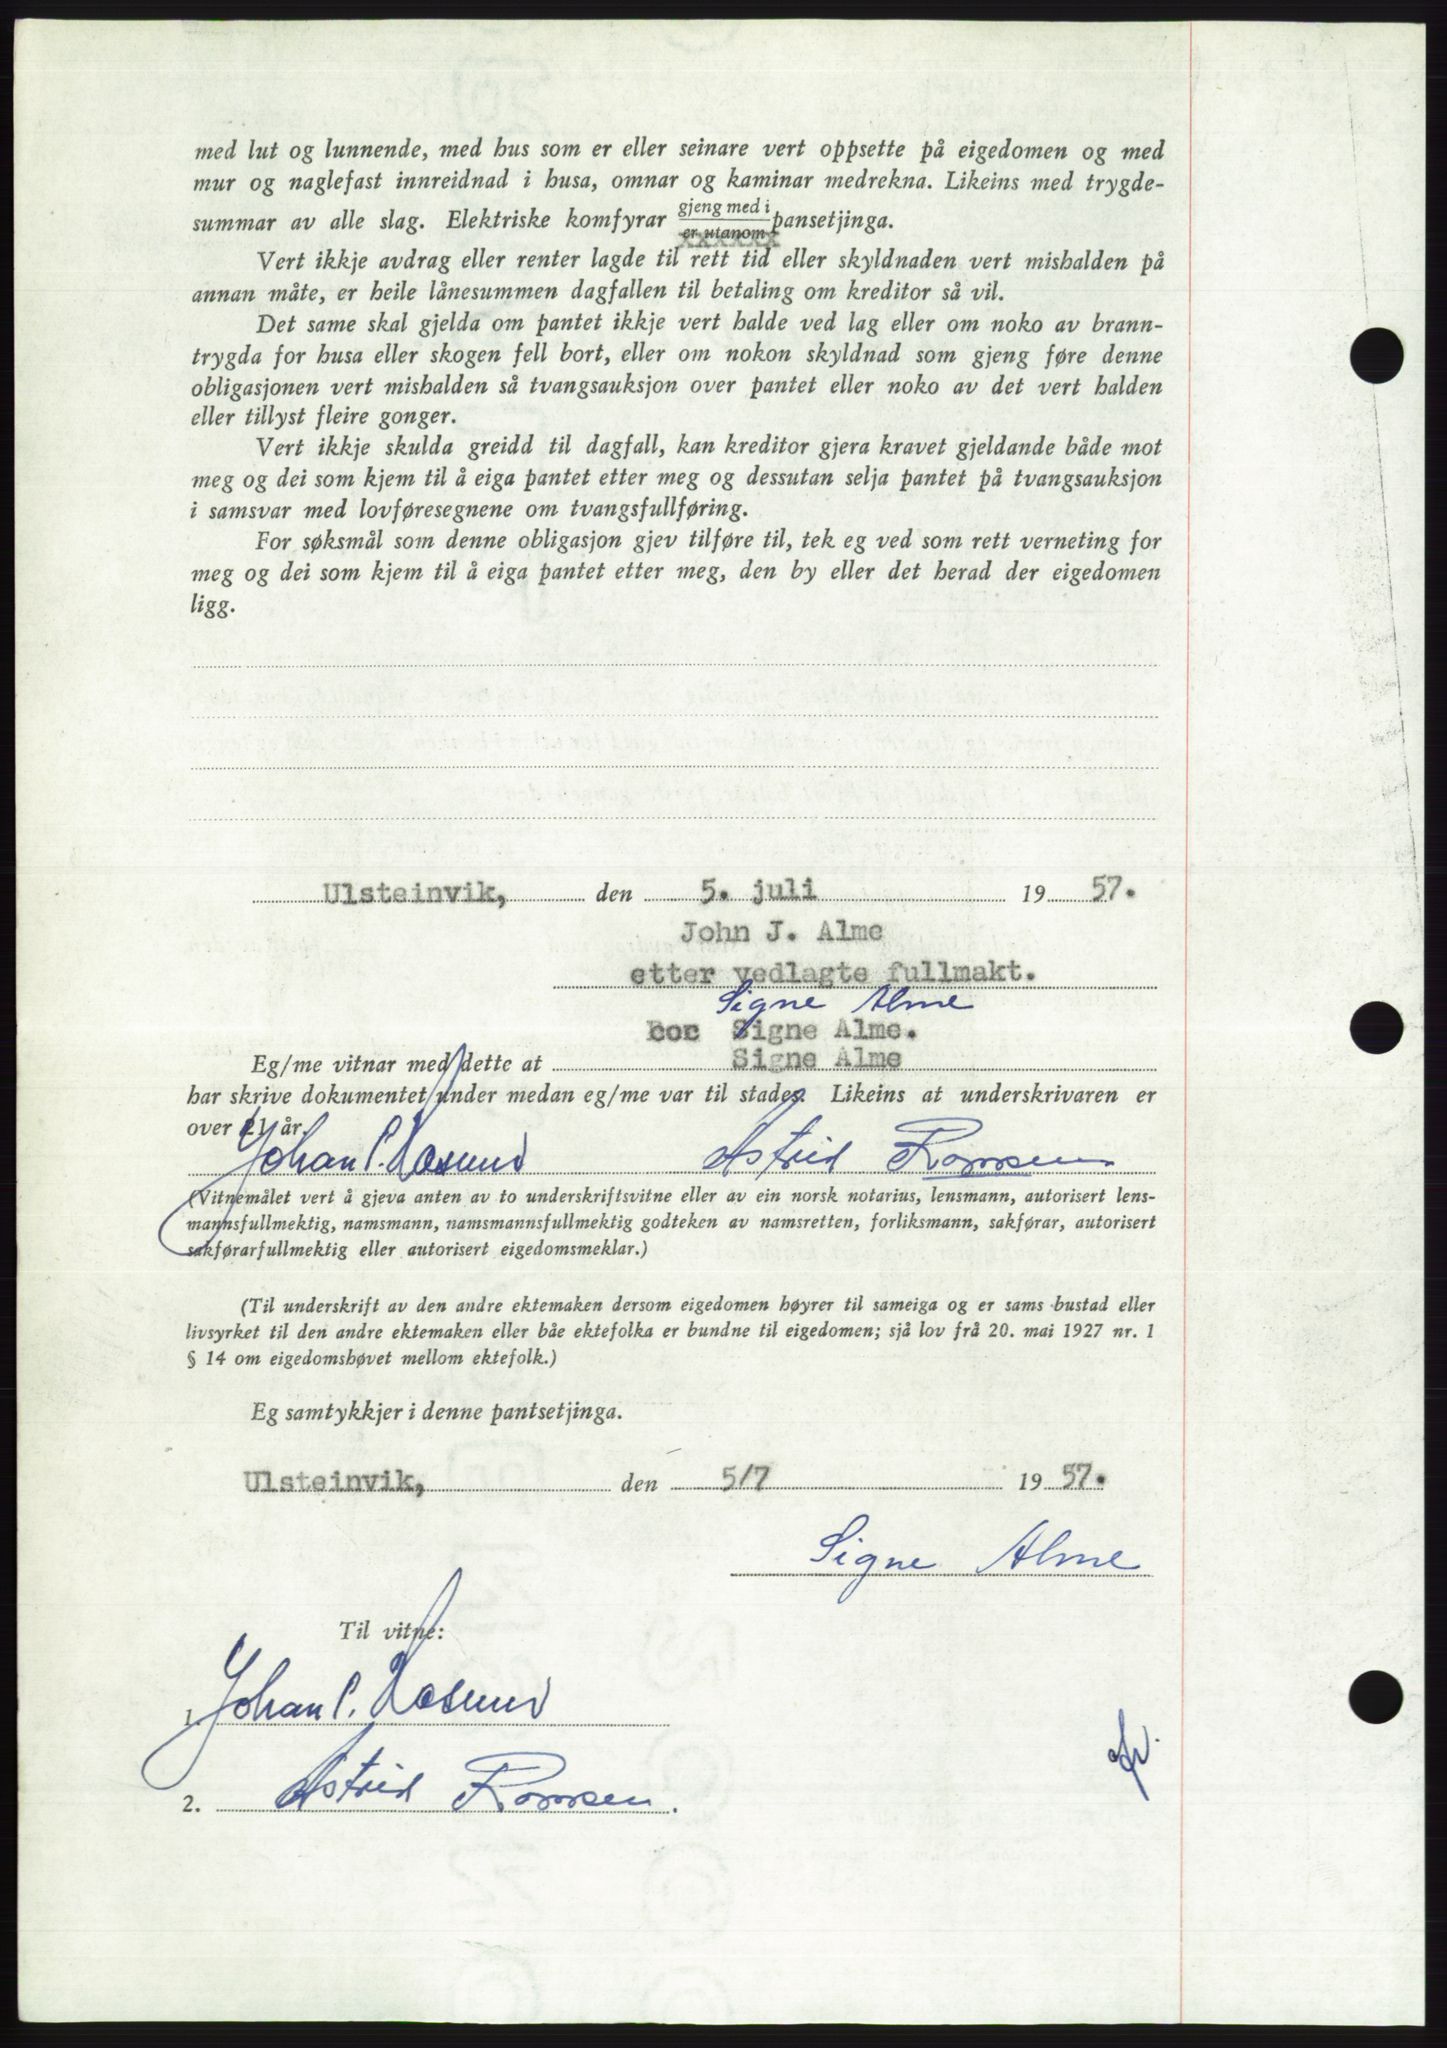 med lut og lunnende, med hus som er eller seinare vert oppsette på eigedomen og med
mur og naglefast innreidnad i husa, omnar og kaminar medrekna. Likeins med trygde-
summar av alle slag. Elektriske komfyrar gjeng med i er utanom pansetjinga.
Vert ikkje avdrag eller renter lagde til rett tid eller skyldnaden vert mishalden på
annan måte, er heile lånesummen dagfallen til betaling om kreditor så vil.
Det same skal gjelda om pantet ikkje vert halde ved lag eller om noko av brann-
trygda for husa eller skogen fell bort, eller om nokon skyldnad som gjeng føre denne
obligasjonen vert mishalden så tvangsauksjon over pantet eller noko av det vert halden
eller tillyst fleire gonger.
Vert ikkje skulda greidd til dagfall, kan kreditor gjera kravet gjeldande både mot
meg og dei som kjem til å eiga pantet etter meg og dessutan selja pantet på tvangsauksjon
i samsvar med lovføresegnene om tvangsfullføring.
For søksmål som denne obligasjon gjev tilføre til, tek eg ved som rett verneting for
meg og dei som kjem til å eiga pantet etter meg, den by eller det herad der eigedomen
ligg.
Ulsteinvik, den 5. juli 19 57.
John J. Alme
etter vedlagte fullmakt.
Signe Alme
Signe Alme.
Eg/me vitnar med dette at Signe Alme
har skrive dokumentet under medan eg/me var til stades. Likeins at underskrivaren er
over 21 år.
Johan P. Astrid
(Vitnemålet vert å gjeva anten av to underskriftsvitne eller av ein norsk notarius, lensmann, autorisert lens-
mannsfullmektig, namsmann, namsmannsfullmektig godteken av namsretten, forliksmann, sakførar, autorisert
sakførarfullmektig eller autorisert eigedomsmeklar.)
(Til underskrift av den andre ektemaken dersom eigedomen høyrer til sameiga og er sams bustad eller
livsyrket til den andre ektemaken eller båe ektefolka er bundne til eigedomen; sjå lov frå 20. mai 1927 nr. 1
§ 14 om eigedomshøvet mellom ektefolk.)
Eg samtykkjer i denne pantsetjinga.
Ulsteinvik, den 5/7 19 57.
Signe Alme
Til vitne:
1. Johan P.
2. Astrid